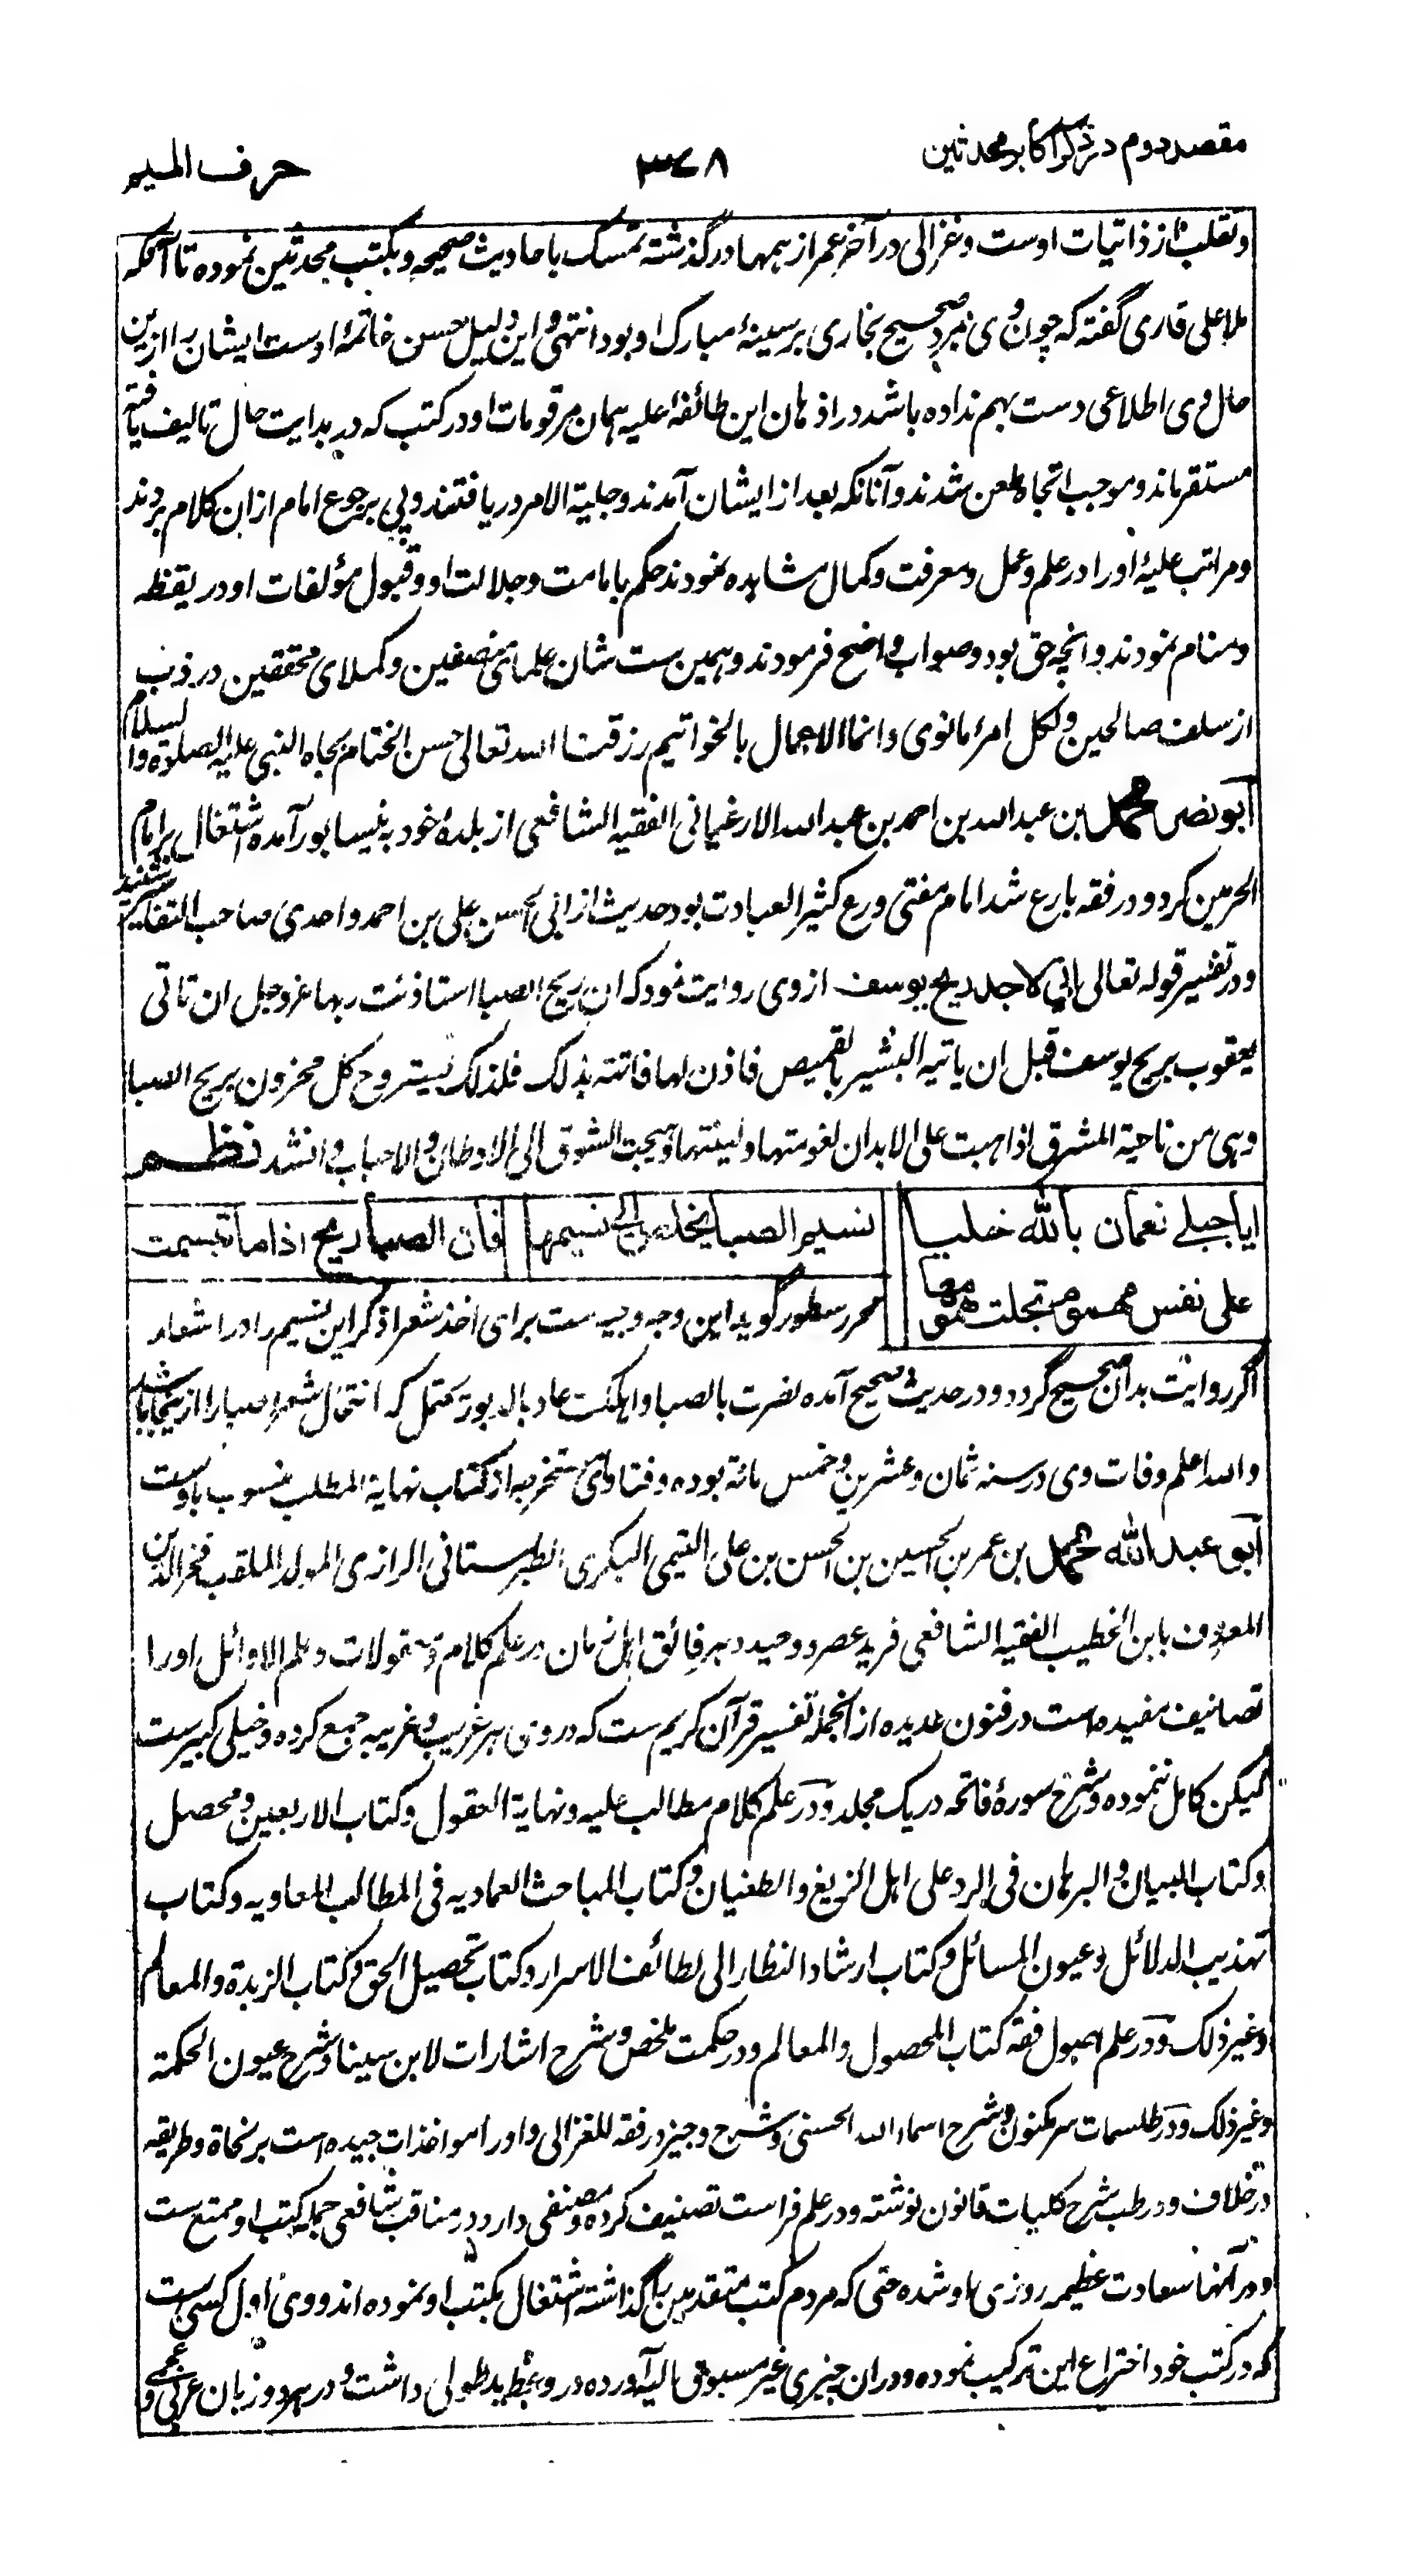 مقصد دوم در ذکر اکابر محدثین
۳۷۸
حرف المیم
وتقلب از ذاتیات اوست وغزالی در آخر عمر از همها درگذشته تمسک باحادیث صحیحه و بکتب محدثین نموده تا آنکه
ملا علی قاری گفته که چون وی بمرد صحیح بخاری بر سینۂ مبارک او بود انتهی و این دلیل حسن خاتمۂ اوست ایشان را ازین
حال وی اطلاعی دست بهم نداده باشد در اذهان این طائفۂ علیه همان مرقومات او در کتب که در بدایت حال تالیف یافته
مستقر ماند و موجب اتجاه طعن شدند و آنانکه بعد از ایشان آمدند و جلیة الامر دریافتند و پی برجوع امام ازان کلام بردند
ومراتب علیۂ او را در علم و عمل ومعرفت وکمال مشاهده نمودند حکم بامامت وجلالت او وقبول مؤلفات او در یقظه
ومنام نمودند و آنچه حق بود وصواب واضح فرمودند و همین ست شان علمای منصفین وکملای محققین در ذب
از سلف صالحین ولکل امرء مانوی وانما الاعمال بالخواتیم رزقنا الله تعالی حسن الختام بجاه النبی علیه الصلوة والسلام
ابو نصر محمد بن عبدالله بن احمد بن عبدالله الارغیانی الفقیه الشافعی از بلدۂ خود به نیسابور آمده اشتغال بر امام
الحرمین کرد و در فقه بارع شد امام مفتی ورع کثیر العبادت بود حدیث از ابی الحسن علی بن احمد واحدی صاحب التفاسیر شنید
ودر تفسیر قوله تعالی انی لاجد ریح یوسف از وی روایت نمود که ان ریح الصبا استاذنت ربها عز وجل ان تاتی
یعقوب بریح یوسف قبل ان یاتیه البشیر بالقمیص فاذن لها فاتته بذلک فلذلک یستروح کل محزون بریح الصبا
وهی من ناحیة المشرق اذا هبت علی الابدان نعومتها ولینتها وهیجت الشوق الی الاوطان والاحباب وانشد نظم
ایا جبلے نعمان بالله خلیا نسیم الصبا یخلص الی نسیمها فان الصبا ریح اذا ما تبسمت
علی نفس مهموم تجلت همومها محرر سطور گوید این وجه وجیه ست برای اخذ شعرا ذکر این نسیم را در اشعار
اگر روایت بدان صحیح گردد و در حدیث صحیح آمده نصرت بالصبا واهلکت عاد بالدبور محتمل که انتقال شعرا صبا را ازینجا باشد
والله اعلم وفات وی در سنه ثمان وعشرین وخمس مائة بوده وفتاوای مستخرجه از کتاب نهایة المطلب منسوب باوست
ابو عبدالله محمد بن عمر بن الحسین بن الحسن بن علی التیمی البکری الطبرستانی الرازی المولد الملقب فخرالدین
المعروف بابن الخطیب الفقیه الشافعی فرید عصر و وحید دهر فائق اهل زمان در علم کلام ومعقولات وعلم الاوائل او را
تصانیف مفیده است در فنون عدیده ازانجمله تفسیر قرآن کریم ست که دروی هر غریب وغریبه جمع کرده و خیلی کبیر ست
لیکن کامل ننموده وشرح سورۂ فاتحه در یک مجلد ودر علم کلام مطالب علیه ونهایة العقول وکتاب الاربعین ومحصل
وکتاب البیان والبرهان فی الرد علی اهل الزیغ والطغیان وکتاب المباحث العمادیه فی المطالب المعاویه وکتاب
تهذیب الدلائل وعیون المسائل وکتاب ارشاد النظار الی لطائف الاسرار وکتاب تحصیل الحق وکتاب الزبدة والمعالم
وغیر ذلک ودر علم اصول فقه کتاب المحصول والمعالم ودر حکمت ملخص وشرح اشارات لابن سینا وشرح عیون الحکمة
وغیر ذلک ودر طلسمات سر مکنون وشرح اسماء الله الحسنی وشرح وجیز در فقه للغزالی و او را مواخذات جیده است بر نحاة وطریقه
در خلاف ودر طب شرح کلیات قانون نوشته ودر علم فراست تصنیف کرده ومصنفی دارد در مناقب شافعی جمله کتب او ممتع ست
ودر آنها سعادت عظیمه روزی او شده حتی که مردم کتب متقدمین را گذاشته اشتغال بکتب او نموده اند ووی اول کسی ست
که در کتب خود اختراع این ترکیب نموده ودران چیزی غیر مسبوق الیه آورده در وعظ ید طولی داشت ودر هر دو زبان عربی و عجمی